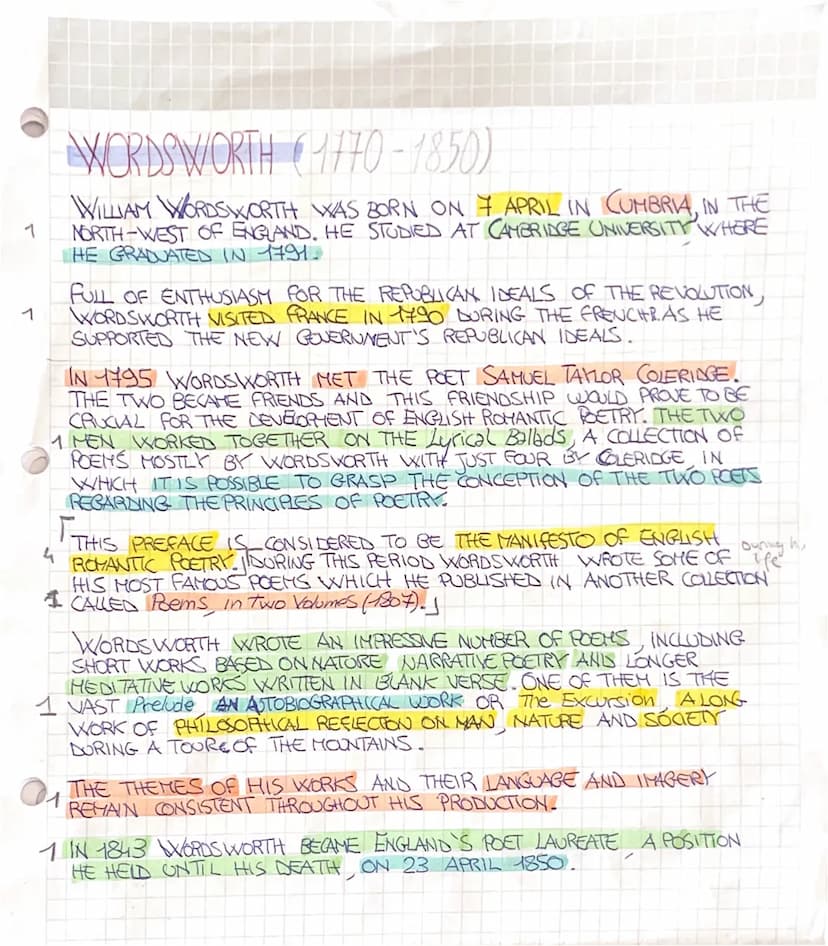 WORDSWORTH (1770 - 1850)
WILLIAM WORDSWORTH WAS BORN ON 7 APRIL IN CUMBRIA, IN THE
1 NORTH-WEST OF ENGLAND. HE STUDIED AT CAMBRIDGE UNIVERSITY, WHERE
HE GRADUATED IN 1791.
FULL OF ENTHUSIASM FOR THE REPUBLICAN IDEALS OF THE REVOLUTION,
1 WORDSWORTH VISITED FRANCE IN 1790 DURING THE FRENCH R. AS HE
SUPPORTED THE NEW GOVERNMENT'S REPUBLICAN IDEALS.
IN 1795 WORDSWORTH MET THE POET SAMUEL TAYLOR COLERIDGE.
THE TWO BECAME FRIENDS AND THIS FRIENDSHIP WOULD PROVE TO BE
CRUCIAL FOR THE DEVELOPMENT OF ENGLISH ROMANTIC POETRY. THE TWO
1 MEN WORKED TOGETHER ON THE Lyrical Ballads, A COLLECTION OF
POEMS MOSTLY BY WORDSWORTH WITH JUST FOUR BY COLERIDGE, IN
WHICH IT IS POSSIBLE TO GRASP THE CONCEPTION OF THE TWO POETS
REGARDING THE PRINCIPLES OF POETRY.
THIS PREFACE IS CONSIDERED TO BE THE MANIFESTO OF ENGLISH
4 ROMANTIC POETRY. DURING THIS PERIOD WORDSWORTH WROTE SOME OF
During life
HIS MOST FAMOUS POEMS WHICH HE PUBLISHED IN ANOTHER COLLECTION
1 CALLED Poems, in Two Volumes (1807).
WORDSWORTH WROTE AN IMPRESSIVE NUMBER OF POEMS, INCLUDING
SHORT WORKS BASED ON NATURE, NARRATIVE POETRY AND LONGER
MEDITATIVE WORKS WRITTEN IN BLANK VERSE. ONE OF THEM IS THE
1 VAST Prelude AN AUTOBIOGRAPHICAL WORK OR The Excursion, A LONG
WORK OF PHILOSOPHICAL REFLECTON ON MAN, NATURE AND SOCIETY
DURING A TOUR OF THE MOUNTAINS.
THE THEMES OF HIS WORKS AND THEIR LANGUAGE AND IMAGERY
1 REMAIN CONSISTENT THROUGHOUT HIS PRODUCTION.
1 IN 1843 WORDSWORTH BECAME ENGLAND'S POET LAUREATE, A POSITION
HE HELD UNTIL HIS DEATH, ON 23 APRIL 1850.